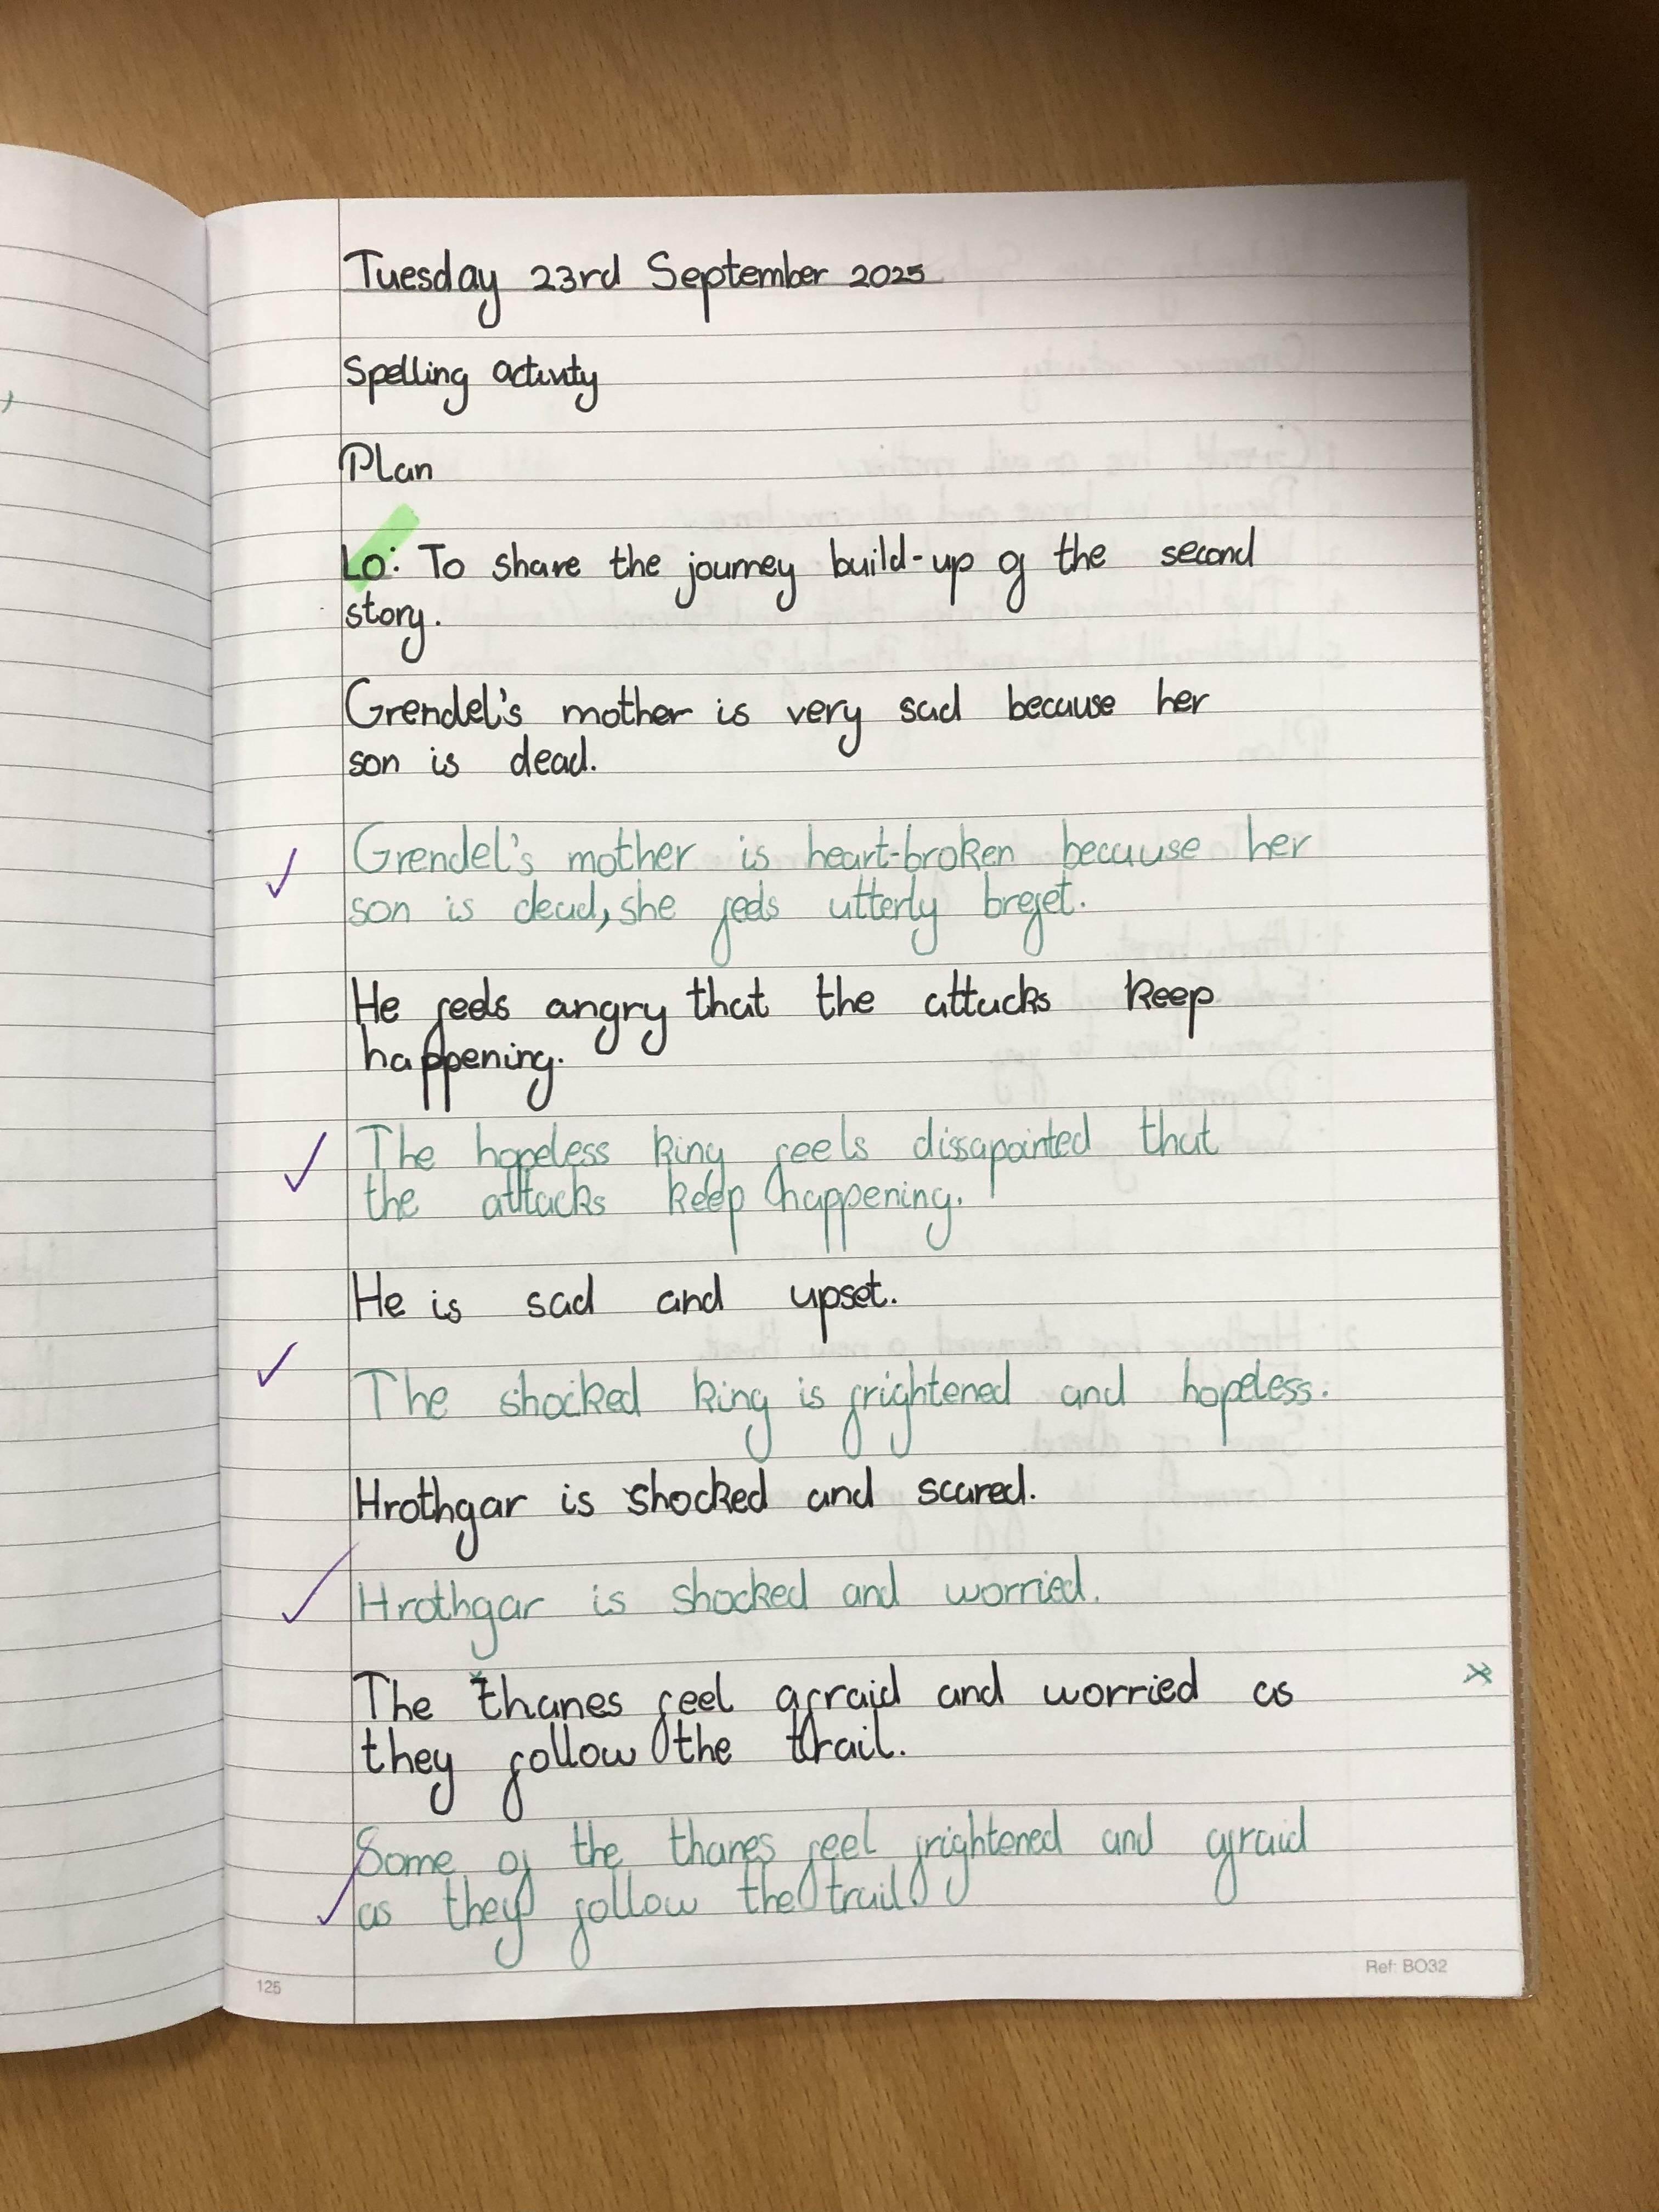 Tuesday 23rd September 2025
Spelling activity
Plan
Lo: To share the journey build-up of the second
story.
Grendel's mother is very sad because her
son is dead.
Grendel's mother is heart-broken because her
son is dead, she feels utterly breft.
He feels angry that the attacks keep
happening.
The hopeless king feels dissapointed that
the attacks keep happening.
He is sad and upset.
The shocked king is frightened and hopeless.
Hrothgar is shocked and scared.
Hrothgar is shocked and worried.
The thanes feel afraid and worried as
they follow the trail.
Some of the thanes feel frightened and afraid
as they follow the trail.
125
Ref: BO32